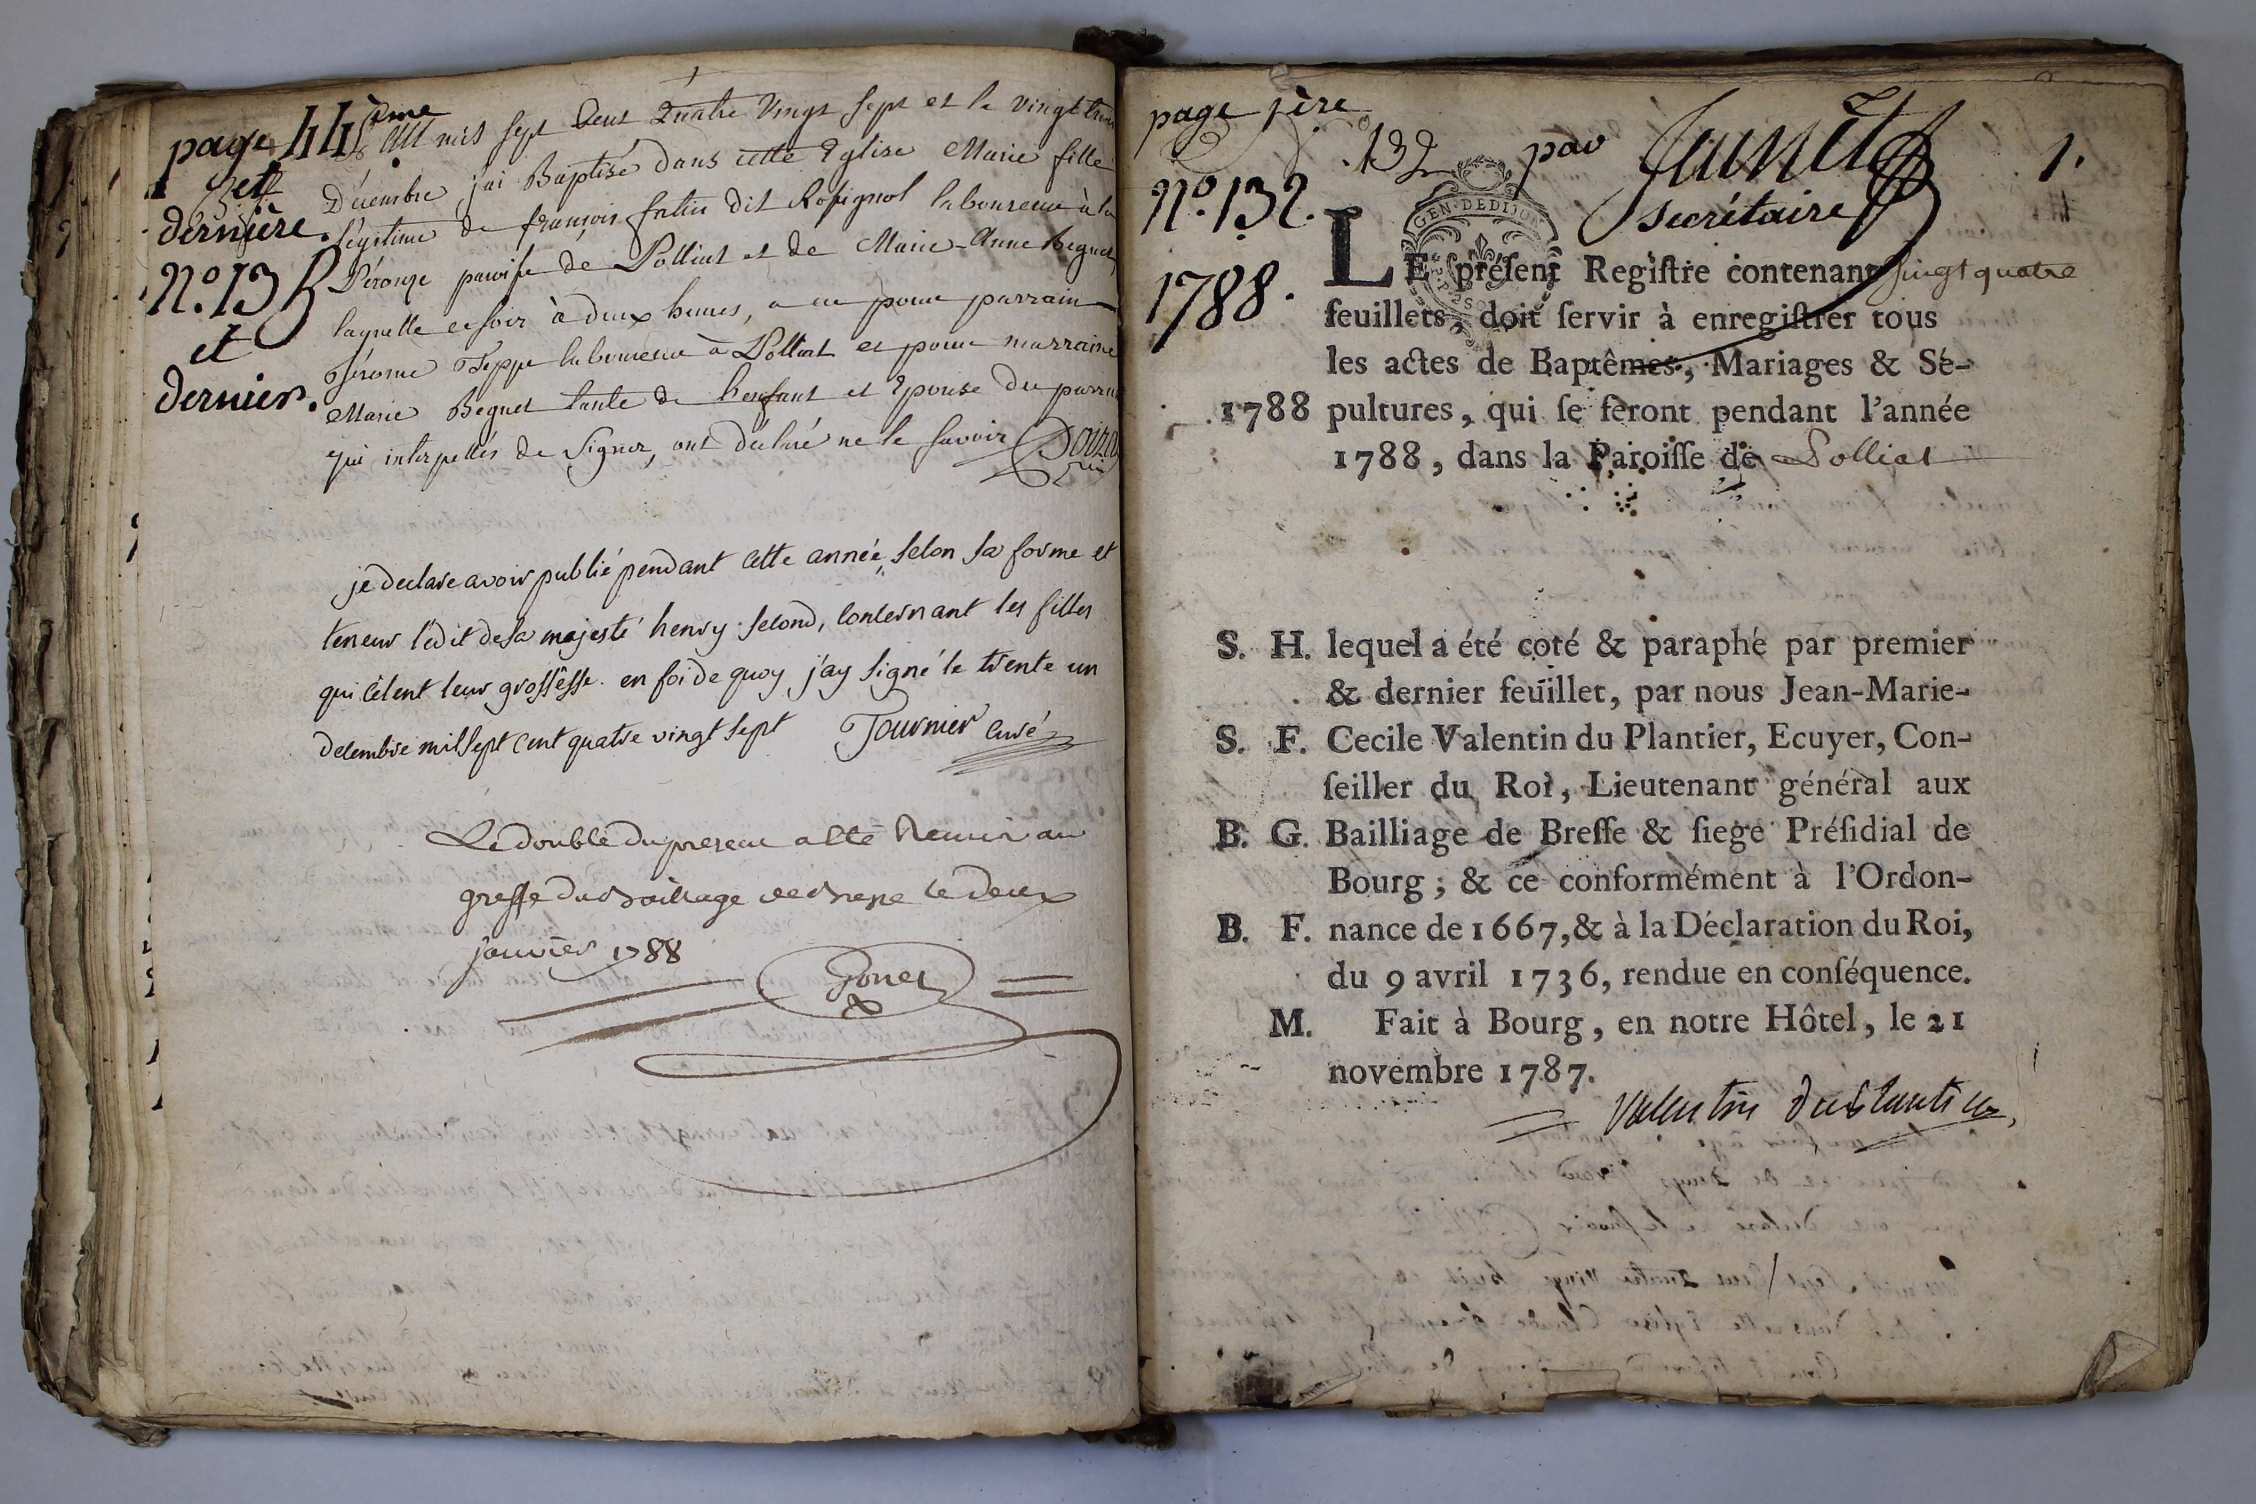 page 44ème
et
dernière.
N°. 135
et
dernier.
mil sept Cent Quatre Vingt Sept et le vingt trois
Décembre j'ai Baptisé dans cette Eglise Marie fille
légitime de françois fatin dit Rossignol laboureur à la
Péronge paroisse de Polliat et de Marie-Anne Beguet,
laquelle ce soir à deux heures, a eu pour parrain
Jérome Teppe laboureur à Polliat et pour marraine
Marie Beguet tante de l'enfant et Epouse du parrain
qui interpellés de Signer, ont déclaré ne le savoir
je declare avoir publié pendant cette année, selon sa forme et
teneur l'édit de sa majesté henry second, concernant les filles
qui cèlent leur grossêsse. en foi de quoy j'ay signé le trente un
decembre mil sept cent quatre vingt sept Tournier curé
Le double du present a été Remis au
greffe du Bailliage de Bresse le deux
janvier 1788
page 1ère
132 par Jaunet 1.
N°. 132. Secrétaire
1788.
GEN. DE DIJON
LE présent Registre contenant vingt quatre
feuillets, doit servir à enregistrer tous
les actes de Baptêmes, Mariages & Sé-
1788 pultures, qui se feront pendant l'année
1788, dans la Paroisse de Polliat
S. H. lequel a été coté & paraphé par premier
& dernier feuillet, par nous Jean-Marie-
S. F. Cecile Valentin du Plantier, Ecuyer, Con-
seiller du Roi, Lieutenant général aux
B. G. Bailliage de Bresse & siege Présidial de
Bourg ; & ce conformément à l'Ordon-
B. F. nance de 1667, & à la Déclaration du Roi,
du 9 avril 1736, rendue en conséquence.
M. Fait à Bourg, en notre Hôtel, le 21
novembre 1787.
Valentin duplantier